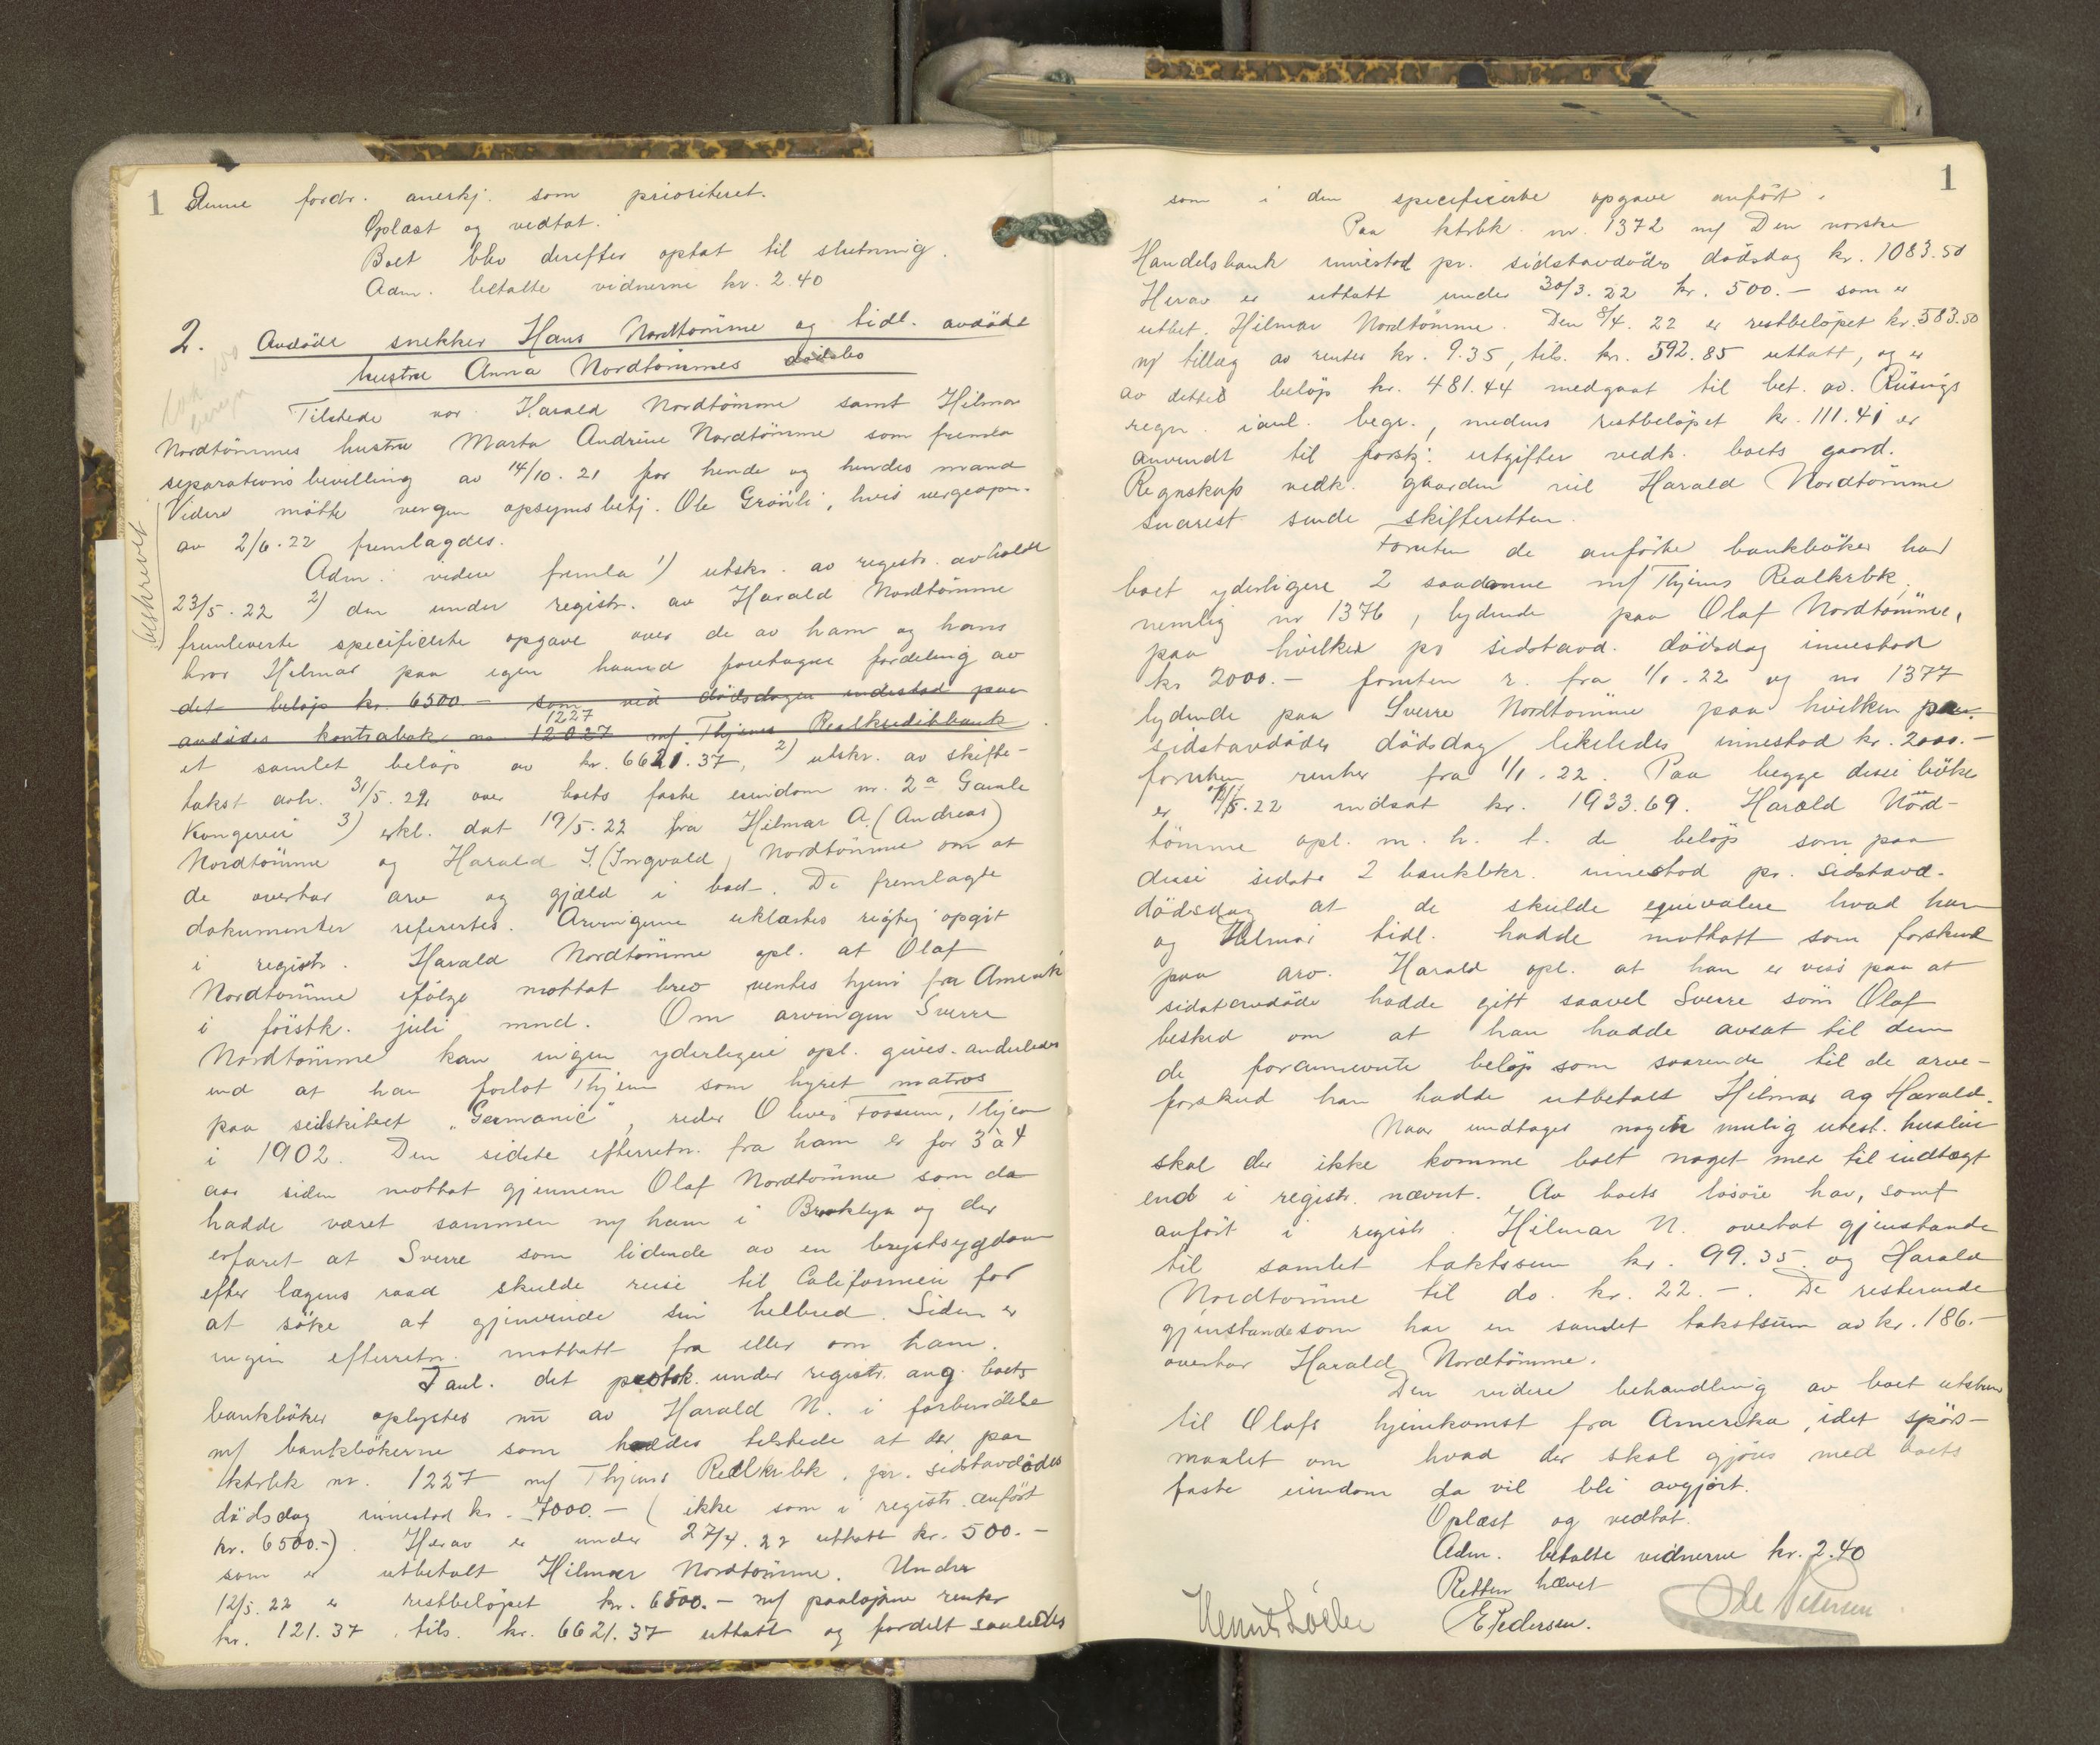 1
Denne fordr. anerkj. som prioriteret.
Oplæst og vedtat.
Boet blev derefter optat til slutning.
Adm. betalte vidnerne kr. 2.40
2. Avdöde snekker Hans Nordtömme og tidl. avdöde
hustru Anna Nordtömmes dödsbo
Tilstede var Harald Nordtömme samt Hilmar
Nordtömmes hustru Marta Andrine Nordtömme som fremla
separationsbevilling av 14/10. 21 for hende og hendes mand
Videre mötte vergen opsynsbetj. Ole Grönli, hvis vergeopn.
av 2/6. 22 fremlagdes.
beskrevet
Adm. videre fremla 1) utskr. av registr. avholdt
23/5. 22 2) den under registr. av Harald Nordtömme
fremleverte specificerte opgave over de av ham og hans
bror Hilmar paa egen haand foretagne fordeling av
det belöp kr. 6500.- som ved dödsdagen indestod paa
avdödes kontrabok no 12027 1227 m/ Thjems Realkreditbank
et samlet belöp av kr. 6621.37, 2) utskr. av skifte-
takst avh. 31/5. 22 over boets faste eiendom nr. 2a Gamle
Kongevei 3) erkl. dat 19/5. 22 fra Hilmar A. (Andreas)
Nordtömme og Harald I. (Ingvald) Nordtömme om at
de overtar arv og gjæld i boet. De fremlagte
dokumenter refertes. Arvingerne erklærtes rigtig opgit
i registr. Harald Nordtömme opl. at Olaf
Nordtömme ifölge mottat brev ventes hjem fra Amerik
i förstk. juli mnd. Om arvingen Sverre
Nordtömme kan ingen yderligere opl. gives. anderledes
end at han forlot Thjem som hyret matros
paa seilskibet "Germanic", reder Oluvs Fossum, Thjem
i 1902. Den sidste efterretn. fra ham er for 3 à 4
aar siden mottat gjennem Olaf Nordtömme som da
hadde været sammen m/ ham i Brooklyn og der
erfaret at Sverre som lidende av en brystsygdom
efter lægens raad skulde reise til Californien for
at söke at gjenvinde sin helbred. Siden er
ingen efterretn. mottatt fra eller om ham.
I anl. det protok. under registr. ang. boets
bankböker oplystes nu av Harald N. i forbindelse
m/ bankbökerne som haddes tilstede at der paa
ktrbk nr. 1227 m/ Thjems Realkrbk. pr. sidstavdödes
dödsdag innestod kr. 7000.- (ikke som i registr. anfört
kr. 6500.-). Herav er under 27/4. 22 uttatt kr. 500.-
som er utbetalt Hilmar Nordtömme. Under
12/5. 22 er restbelöpet kr. 6500.- m/ paalöpne renter
kr. 121.37 tils. kr. 6621.37 uttatt og fordelt saaledes
1
som i den specificerte opgave anfört.
Paa ktrbk. nr. 1372 m/ Den norske
Handelsbank innestod pr. sidstavdödes dödsdag kr. 1083.50
Herav er uttatt under 30/3. 22 kr. 500.- som er
utbet. Hilmar Nordtömme. Den 8/4. 22 er restbelöpet kr. 583.50
m/ tillæg av renter kr. 9.35, tils. kr. 592.85 uttatt, og er
av dette belöp kr. 481.44 medgaat til bet. av Rüsings
regn. i anl. begr., medens restbelöpet kr. 111.41 er
anvendt til forskj. utgifter vedk. boets gaard.
Regnskap vedk. gaarden vil Harald Nordtömme
snarest sende skifteretten.
Foruten de anförte bankböker har
boet yderligere 2 saadanne m/ Thjems Realkrbk,
nemlig nr 1376, lydende paa Olaf Nordtömme,
paa hvilken pr sidstavd. dödsdag innestod
kr 2000.- foruten r. fra 1/1. 22 og nr 1377
lydende paa Sverre Nordtömme paa hvilken paa
sidstavdödes dödsdag likeledes innestod kr. 2000.-
foruten renter fra 1/1. 22. Paa begge disse böker
er 12/5. 22 indsat kr. 1933.69. Harald Nord-
tömme opl. m. h. t. de belöp som paa
disse sidste 2 bankbkr. innestod pr. sidstavd.
dödsdag at de skulde equivalere hvad han
og Hilmar tidl. hadde mottatt som forskud
paa arv. Harald opl. at han er viss paa at
sidstavdöde hadde gitt saavel Sverre som Olaf
besked om at han hadde avsat til dem
de forannevnte belöp som svarende til de arve-
forskud han hadde utbetalt Hilmar og Harald.
Naar undtages nogen mulig utest. husleie
skal der ikke komme boet noget mer til indtægt
end i registr. nævnt. Av boets lösöre har, som
anfört i registr. Hilmar N. overtat gjenstande
til samlet takstsum kr. 99.35 og Harald
Nordtömme til do. kr. 22.-. De resterende
gjenstande som har en samlet takstsum av kr. 186.-
overtar Harald Nordtömme.
Den videre behandling av boet utstaar
til Olafs hjemkomst fra Amerika, idet spörs-
maalet om hvad der skal gjöres med boets
faste eiendom da vil bli avgjort.
Oplæst og vedtat.
Adm. betalte vidnerne kr. 2.40
Retten hævet
E Pedersen.
Ole Petersen